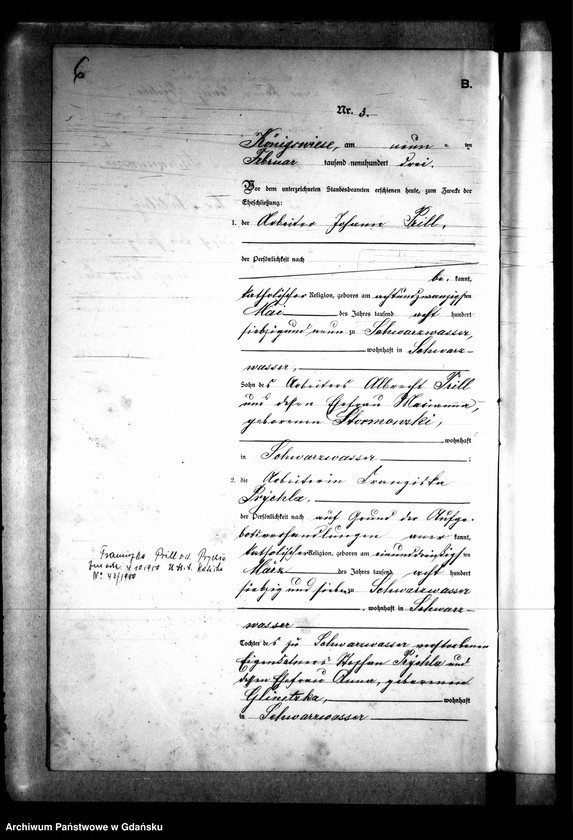 6
B.
Nr. 3.
Königswiese, am neun ten
Februar tausend neunhundert drei.
Vor dem unterzeichneten Standesbeamten erschienen heute, zum Zwecke der
Eheschließung:
1. der Arbeiter Johann Prill,
der Persönlichkeit nach
be kannt,
katholischer Religion, geboren am achtundzwanzigsten
Mai des Jahres tausend acht hundert
siebzig und neun zu Schwarzwasser,
wohnhaft in Schwarz-
wasser,
Sohn des Arbeiters Albrecht Prill
und dessen Ehefrau Marianna,
geborenen
wohnhaft
in Schwarzwasser ;
2. die Arbeiterin Franziska
Prÿchla,
der Persönlichkeit nach auf Grund der Aufge-
botsverhandlungen aner kannt,
katholischer Religion, geboren am einunddreißigsten
März des Jahres tausend acht hundert
siebzig und sieben zu Schwarzwasser
, wohnhaft in Schwarz-
wasser
Tochter des zu Schwarzwasser verstorbenen
Eigentümers Stephan Prÿchla und
dessen Ehefrau Anna, geborenen
Glinetzka, wohnhaft
in Schwarzwasser
Franciszka Prill z d.
zmarła 4.10.1950 U.S.C. Kaliska
Nº 43/1950
Archiwum Państwowe w Gdańsku